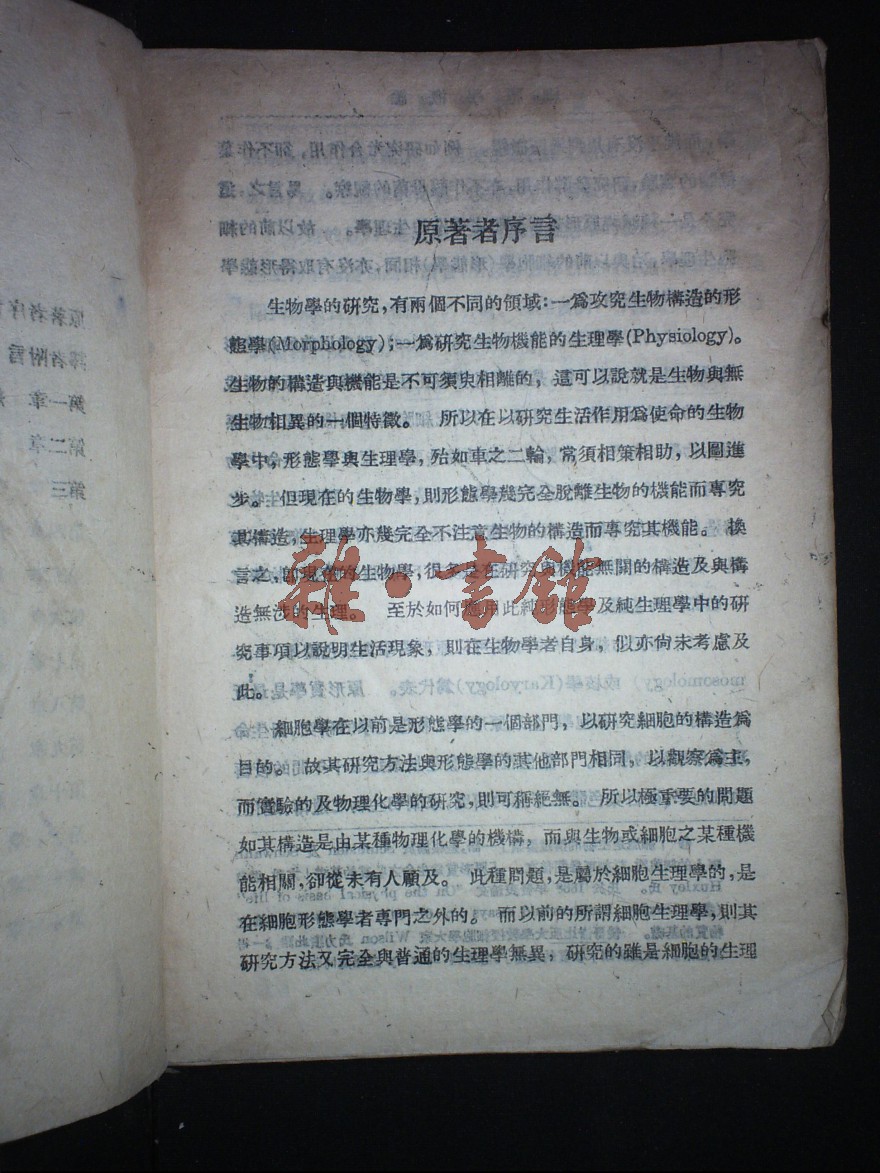 原著者序言
生物學的研究,有兩個不同的領域:一爲攻究生物構造的形
態學(Morphology);一爲研究生物機能的生理學(Physiology)。
生物的構造與機能是不可須臾相離的,這可以說就是生物與無
生物相異的一個特徵。 所以在以研究生活作用爲使命的生物
學中,形態學與生理學,殆如車之二輪,常須相策相助,以圖進
步。 但現在的生物學,則形態學幾完全脫離生物的機能而專究
其構造,生理學亦幾完全不注意生物的構造而專究其機能。 換
言之,的現在的生物學,很多是在研究與機能無關的構造及與構
造無涉的生理。 至於如何應用此純形態學及純生理學中的研
究事項以說明生活現象,則在生物學者自身,似亦尚未考慮及
此。
細胞學在以前是形態學的一個部門,以研究細胞的構造爲
目的。 故其研究方法與形態學的其他部門相同,以觀察爲主,
而實驗的及物理化學的研究,則可稱絕無。 所以極重要的問題
如其構造是由某種物理化學的機構,而與生物或細胞之某種機
能相關,卻從未有人顧及。 此種問題,是屬於細胞生理學的,是
在細胞形態學者專門之外的。 而以前的所謂細胞生理學,則其
研究方法又完全與普通的生理學無異,研究的雖是細胞的生理
雅·書館
原著者序言
譯者附言
第一章
第二章
第三